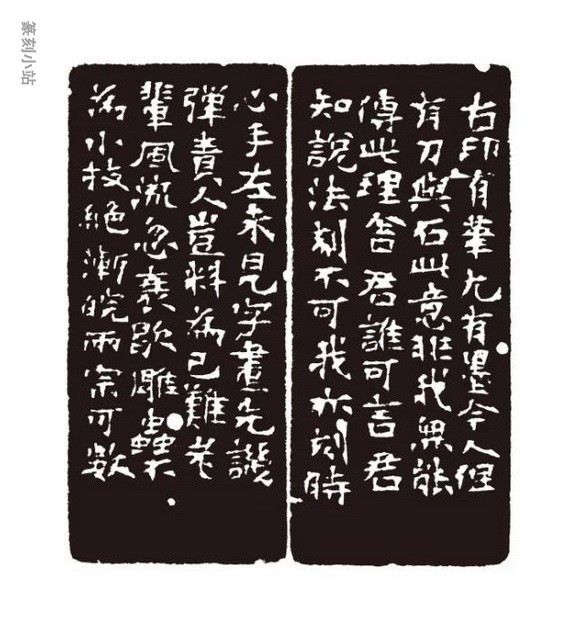 篆刻小站
古印有筆尤有墨今人但
有刀與石此意非我無能
傳此理舍君誰可言君
知說法刻不可我亦刻時
心手左未見字畫先譏
彈責人豈料為己難老
輩風流忽衰歇雕蟲
為小技絕漸皖兩宗可數